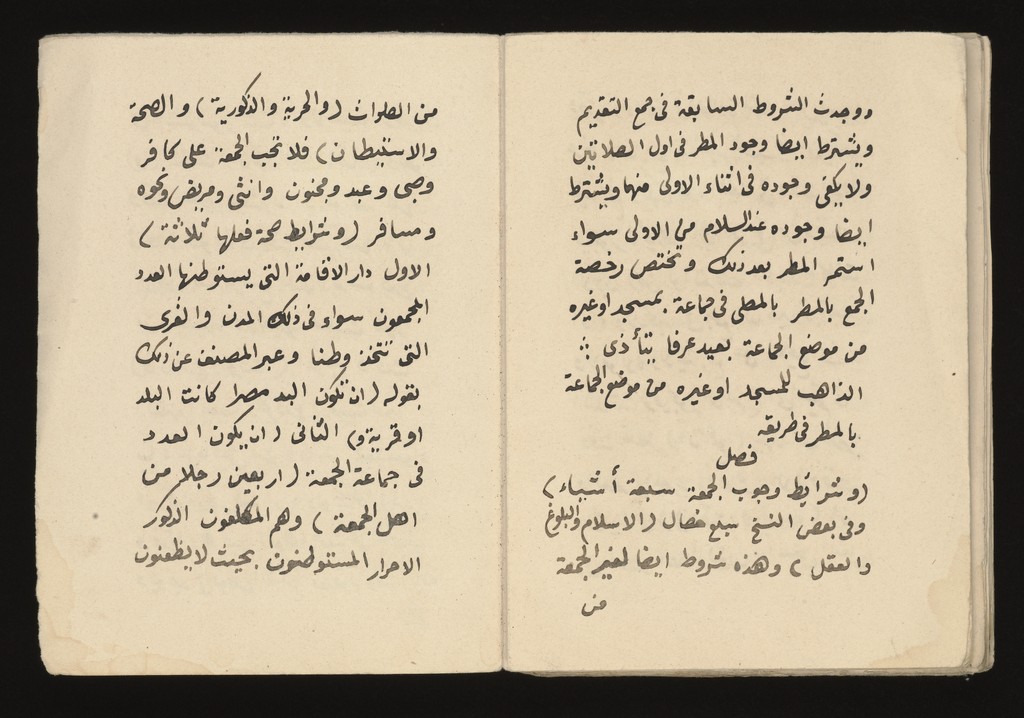 ووجدت الشروط السابقة في جمع التقديم
ويشترط ايضا وجود المطر في اول الصلاتين
ولا يكفي وجوده في اثناء الاولى منهما ويشترط
ايضا وجوده عند السلام من الاولى سواء
استمر المطر بعد ذلك وتختص رخصة
الجمع بالمطر بالمصلي في جماعة بمسجد اوغيره
من موضع الجماعة بعيد عرفا يتأذى
الذاهب للمسجد اوغيره من موضع الجماعة
بالمطر في طريقه
فصل
(وشرائط وجوب الجمعة سبعة أشياء)
وفي بعض النسخ سبع خصال (الاسلام والبلوغ
والعقل) وهذه شروط ايضا لغير الجمعة
من
من الصلوات (والحرية والذكورية) والصحة
والاستيطان) فلا تجب الجمعة على كافر
وصبي وعبد ومجنون وانثى ومريض ونحوه
ومسافر (وشرايط صحة فعلها ثلاثة)
الاول دار الاقامة التي يستوطنها العدد
المجمعون سواء في ذلك المدن والقرى
التي تتخذ وطنا وعبر المصنف عن ذلك
بقوله (ان تكون البد مصرا كانت البلد
او قرية و) الثاني (ان يكون العدد
في جماعة الجمعة (اربعين رجلا من
اهل الجمعة) وهم المكلفون الذكور
الاحرار المستوطنون بحيث لا يظعنون